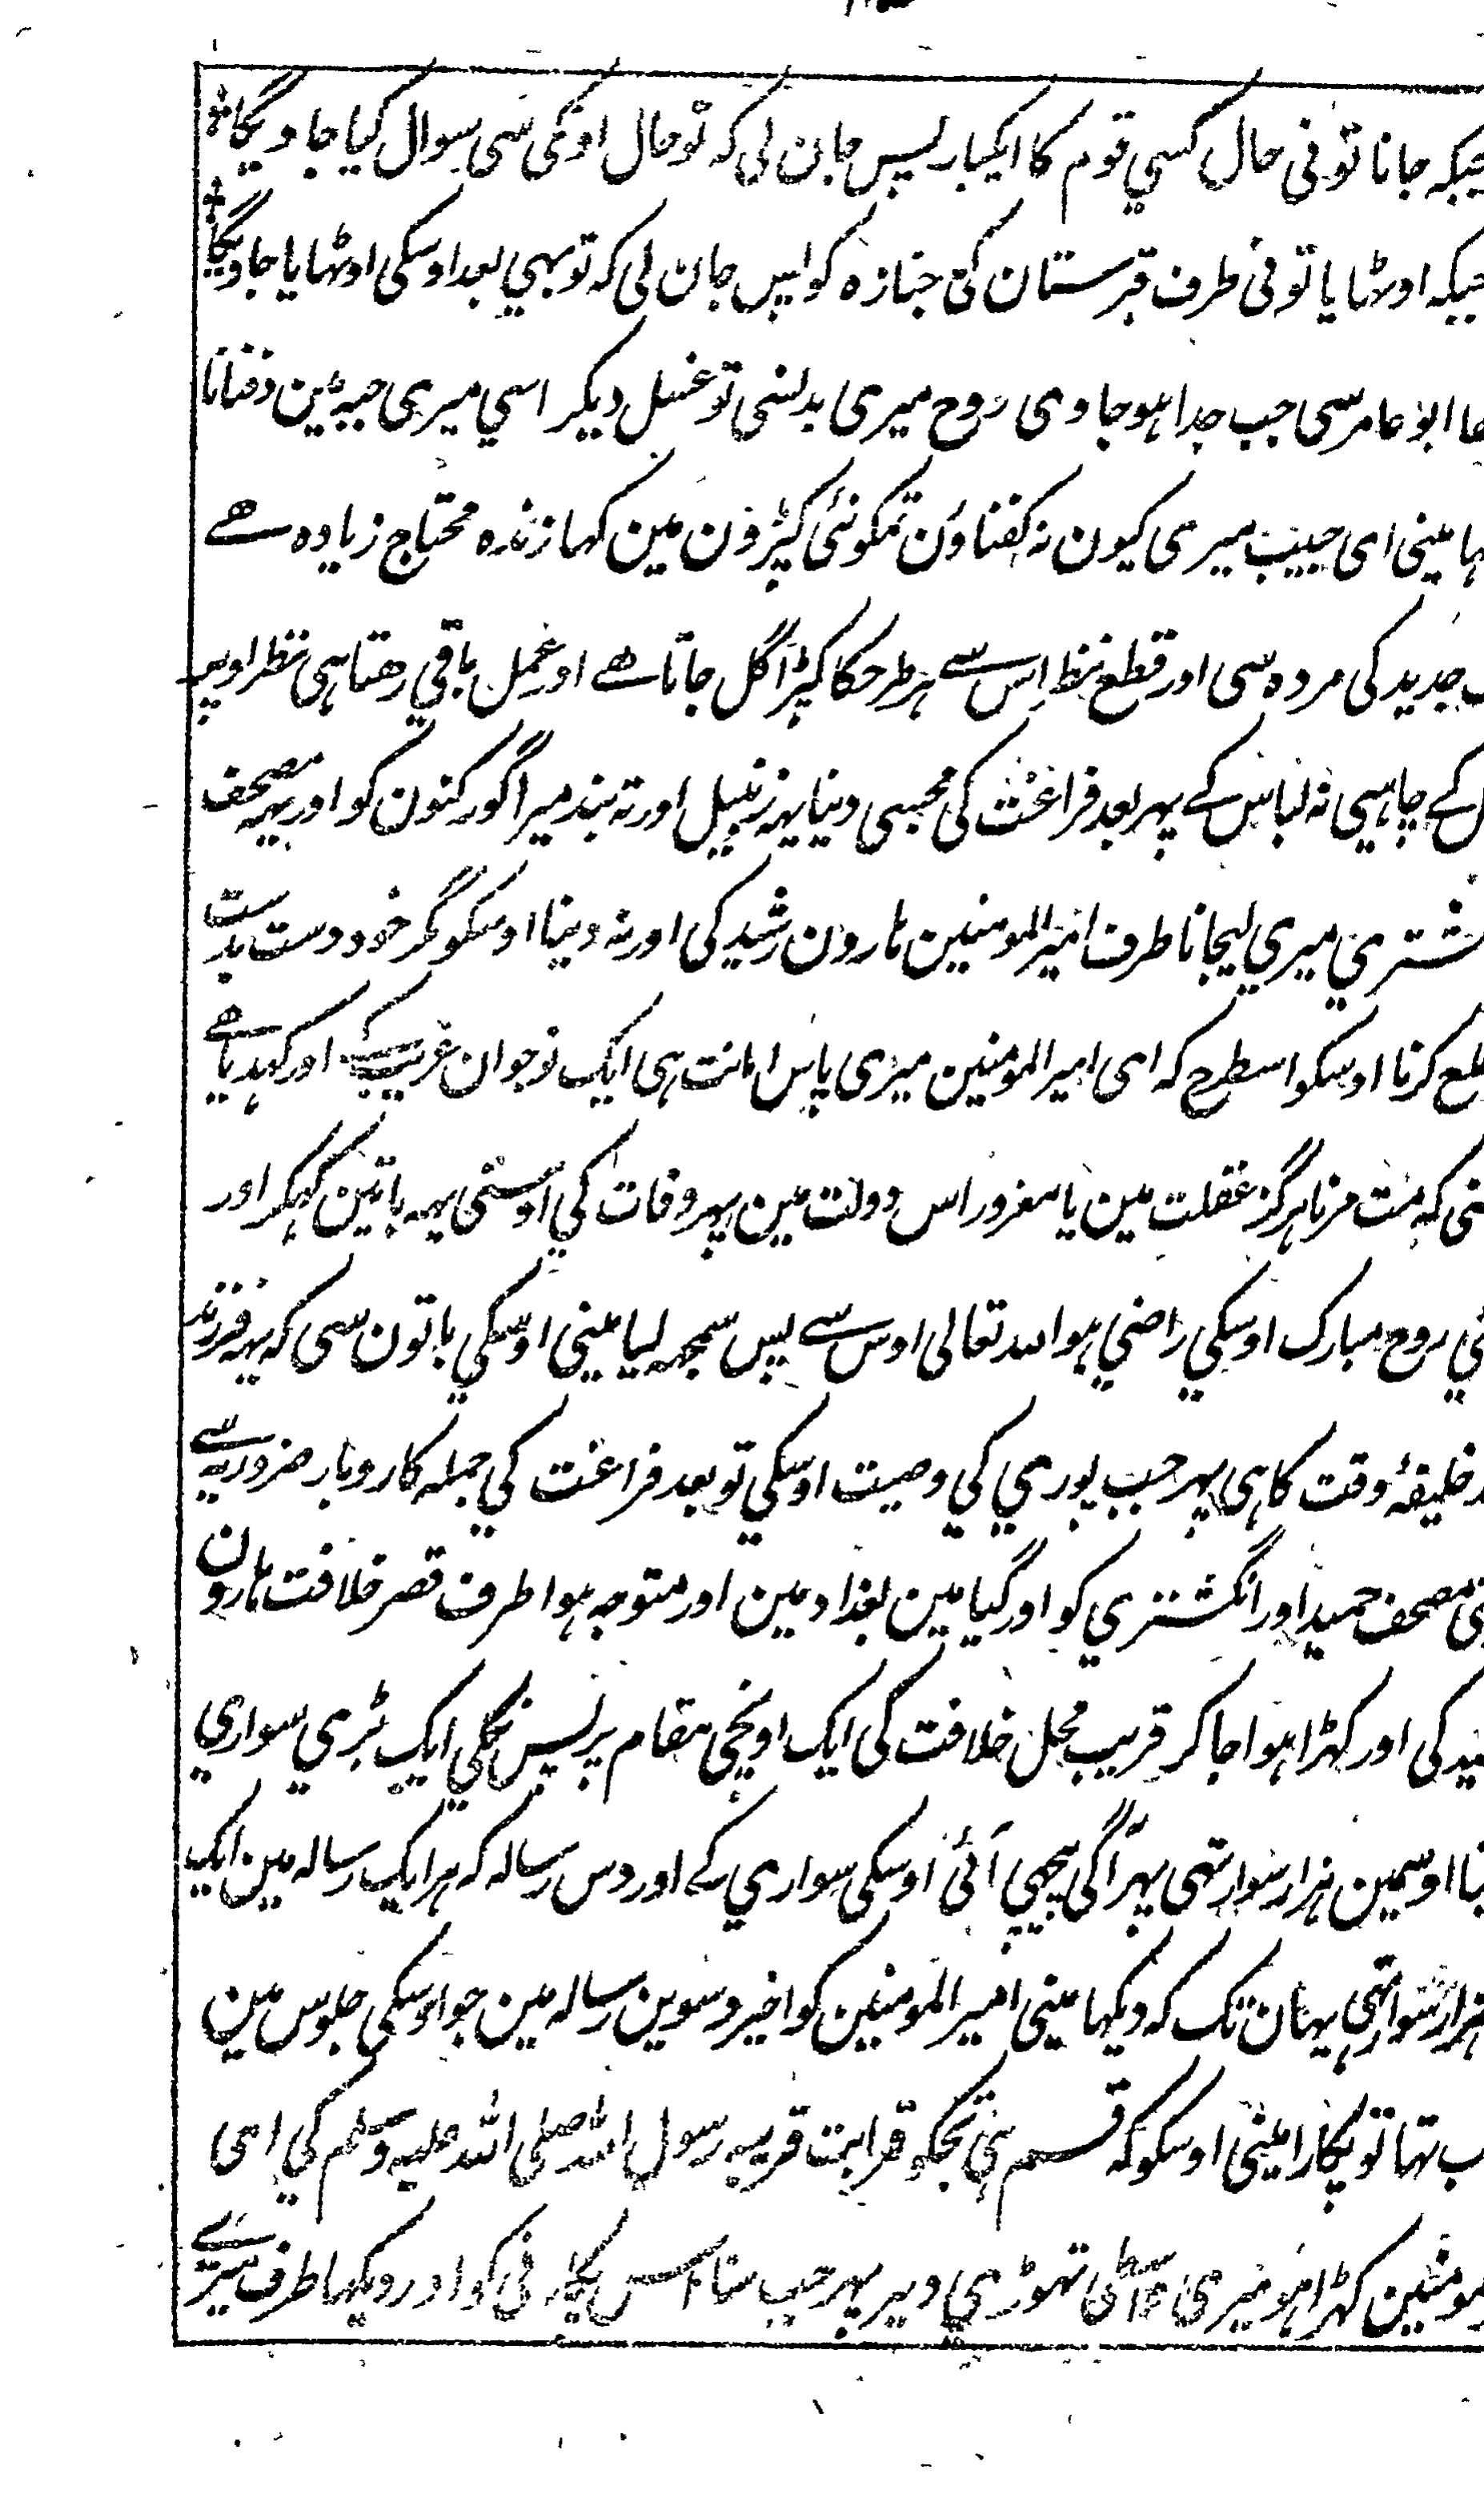 جبکہ جانا تونی حال کسي قوم کا ایکبار پس جان لی کہ تو حال اونکی سی سوال کیا جاویگا
جبکہ اوٹہایا تونی طرف قبرستان کی جنازہ کو پس جان لی کہ توبہي بعد اوسکی اوٹہایا جاویگا
ابو عامر سی جب جدا ہو جاوی روح میری بدنسی تو غسل دیکر اسي میری جبہ مین دفنانا
مینی ای حبیب میری کیون نہ کفناؤن تمکو نئی کپڑون مین کہا زندہ محتاج زیادہ ھے
جدید کی مردہ سی اور قطع نظر اس سے ہر طرحکا کپڑا گل جاتا ھے اور عمل باقي رھتا ہی نظر اوپر
کے چاہیي نہ لباس کے پہر بعد فراغت کی مجہسی دینا یہہ زنبیل اور تہ بند میرا گورکنون کو اور یہہ مصحف
میري لیجانا طرف امیر المومنین ہارون رشید کی اور نہ دینا اوسکو مگر خود دست بدست
کرنا اوسکو اسطرح کہ ای امیر المومنین میری پاس امانت ہی ایک نوجوان غریب کے اور کہدیا ھے
کہ مت مرنا ہرگز غفلت مین یا مغرور اس دولت مین پہر وفات کي اوسنی یہہ باتین کہکر اور
روح مبارک اوسکي راضي ہو اللہ تعالی اوس سے پس سمجہہ لیا مینی اوسکي باتون سی کہ یہہ فرزند
خلیفۂ وقت کا ہی پہر جب پوري کي وصیت اوسکي تو بعد فراغت کي جملہ کاروبار ضروریہ سے
مصحف حمید اور انگشتري کو اور گیا مین بغداد مین اور متوجہ ہوا طرف قصر خلافت ہارون
کی اور کہڑا ہوا جاکر قریب محل خلافت کی ایک اونچی مقام پر پس نکلي ایک بڑي سواري
اوسمین ہزار سوار تہی پہر آگی پیچہي آئی اوسکی سواري کے اور دس رسالہ کہ ہر ایک رسالہ مین ایک
ہزار سوار تہی یہان تک کہ دیکہا مینی امیر المومنین کو اخیر دسوین رسالہ مین جو اوسکی جلوس مین
تہا تو پکارا مینی اوسکو کہ قسم ہی تجکو قرابت قریبہ رسول اللہ صلی اللہ علیہ وسلم کي ای
کہڑا ہو میری واسطی تہوڑي دیر پہر جب سنا اس پکارنی کو اور دیکہا طرف میرے